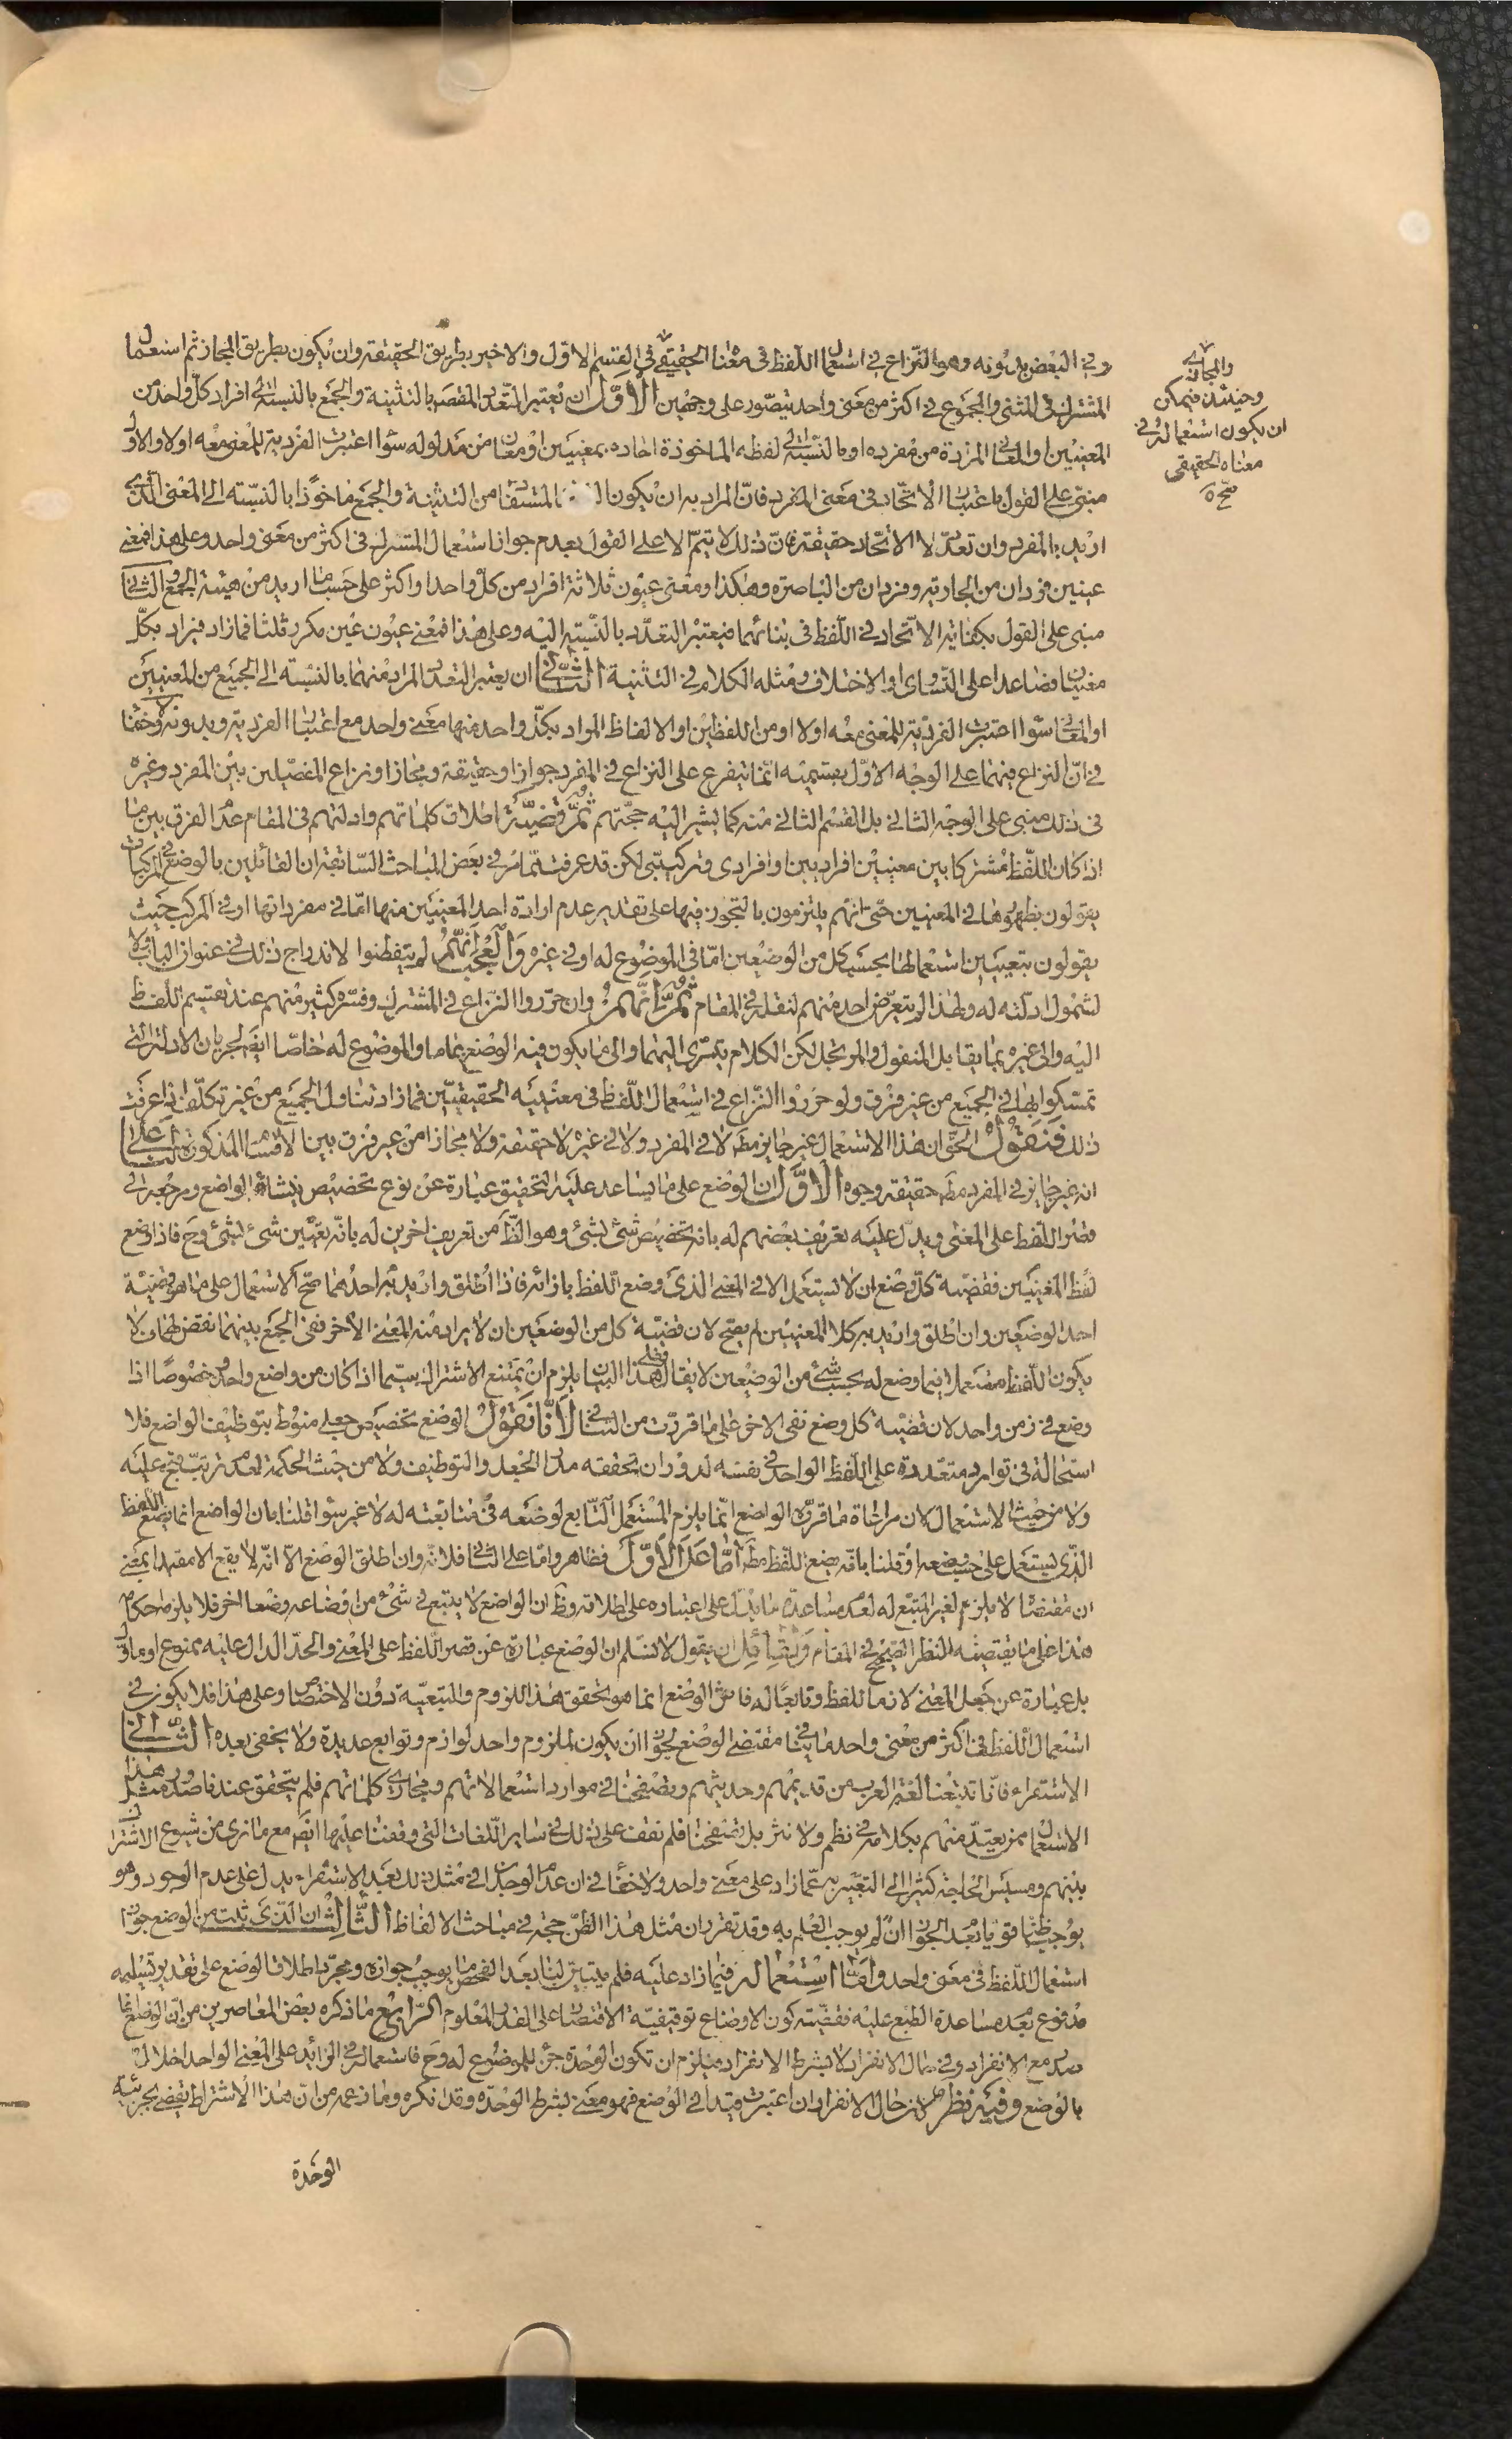 وفي البعض بدونه وهو النزاع في استعمال اللفظ في معناه الحقيقي في القسم الاول والاخير بطريق الحقيقة وان يكون بطريق المجاز ثم استعمال
المشترك في المثنى والمجموع في اكثر من معنى واحد يتصور على وجهين الاول ان يعتبر التعدد المقصود بالتثنية والجمع بالنسبة الى افراد كل واحد من
المعنيين او المعاني المرادة من مفرده او بالنسبة الى لفظه الماخوذة احاده بمعنيين او معان من مدلوله سواء اعتبرت الفردية للمعنى معه اولا والاول
مبني على القول باعتبار الاتحاد في معنى المفرد فان المراد به ان يكون المستفاد من التثنية والجمع ماخوذا بالنسبة الى المعنى الذي
اريد بالمفرد وان تعدد لا الاتحاد حقيقة فان ذلك لا يتم الا على القول بعدم جواز استعمال المشترك في اكثر من معنى واحد وعلى هذا فمعنى
عينين فردان من الجارية وفردان من الباصرة وهكذا ومعنى عيون ثلاثة افراد من كل واحد او اكثر على حسب ما اريد من هيئة الجمع والثاني
مبني على القول بكفاية الاتحاد في اللفظ في بنائهما فيعتبر التعدد بالنسبة اليه وعلى هذا فمعنى عيون عين مكرر ثلثا فما زاد فيراد بكل
معنيان فصاعدا على التساوي او الاختلاف ومثله الكلام في التثنية الثاني ان يعتبر التعدد المراد منهما بالنسبة الى الجميع من المعنيين
او المعاني سواء اعتبرت الفردية للمعنى معه اولا او من اللفظين او الالفاظ المراد بكل واحد منها معنى واحد مع اعتبار الفردية وبدونه ولا خفاء
في ان النزاع فيهما على الوجه الاول بقسميه انما يتفرع على النزاع في المفرد جوازا وحقيقة ومجازا ونزاع المفصلين بين المفرد وغيره
في ذلك مبني على الوجه الثاني بل القسم الثاني منه كما يشير اليه حجتهم ثم قضية اطلاق كلماتهم وادلتهم في المقام عدم الفرق بين ما
اذا كان اللفظ مشتركا بين معنيين افراديين او افرادي وتركيبي لكن قد عرفت مما مر في بعض المباحث السابقة ان القائلين بالوضع في المركبات
يقولون بظهورها في المعنيين حتى انهم يلتزمون بالتجوز فيها على تقدير عدم ارادة احد المعنيين منها اما في مفرداتها او في المركب حيث
يقولون بتعيين استعمالها بحسب كل من الوضعين اما في الموضوع له او في غيره والعجب انهم لم يتفطنوا لاندراج ذلك في عنوان الباب ولا
لشمول ادلته له ولهذا لم يتعرض احد منهم لنقله في المقام ثم انهم وان حرروا النزاع في المشترك وفسره كثير منهم عند تقسيم اللفظ
اليه والى غيره بما يقابل المنقول والمرتجل لكن الكلام يتسرى اليهما والى ما يكون فيه الوضع عاما والموضوع له خاصا ايضا لجريان الادلة التي
تمسكوا بها في الجميع من غير فرق ولو حرروا النزاع في استعمال اللفظ في معنييه الحقيقيين فما زاد تناول الجميع من غير تكلف اذا عرفت
ذلك فنقول الحق ان هذا الاستعمال غير جايز مطلقا لا في المفرد ولا في غيره لا حقيقة ولا مجازا من غير فرق بين الاقسام المذكورة لنا على
انه غير جايز في المفرد مطلقا حقيقة وجوه الاول ان الوضع على ما يساعد عليه التحقيق عبارة عن نوع تخصيص ينشاه الواضع ومرجعه الى
قصر اللفظ على المعنى ويدل عليه تعريف بعضهم له بانه تخصيص شيء بشيء وهو الظاهر من تعريف اخرين له بانه تعيين شيء لشيء وح فاذا وضع
لفظ لمعنيين فقضية كل وضع ان لا يستعمل الا في المعنى الذي وضع اللفظ بازائه فاذا اطلق واريد به احدهما صح الاستعمال على ما هو قضية
احد الوضعين وان اطلق واريد به كلا المعنيين لم يصح لان قضية كل من الوضعين ان لا يراد منه المعنى الاخر ففي الجمع بينهما نقض لهما فلا
يكون اللفظ مستعملا فيما وضع له بحسب شيء من الوضعين لا يقال فعلى هذا البيان يلزم ان يمتنع الاشتراك سيما اذا كان من واضع واحد وخصوصا اذا
وضع في زمن واحد لان قضية كل وضع نفى الاخر على ما قررت من التنافي لانا نقول الوضع تخصيص جعلي منوط بتوظيف الواضع فلا
استحالة في توارد متعددة على اللفظ الواحد في نفسه لدوران تحققه مدار الجعل والتوظيف ولا من حيث الحكمة لعدم ترتب قبح عليه
ولا من حيث الاستعمال لان مراعاة ما قرره الواضع انما يلزم المستعمل التابع لوضعه في متابعته له لا غير سواء قلنا بان الواضع انما يضع اللفظ
الذي يستعمل على حسب وضعه او قلنا بانه يضع اللفظ مطلقا اما على الاول فظاهر واما على الثاني فلانه وان اطلق الوضع الا انه لا يقع الا مقيدا بمعنى
ان مقتضاه لا يلزم لغير المتبع له لعدم مساعدة ما يدل على اعتباره على اطلاقه وظ ان الواضع لا يتبع في شيء من اوضاعه وضعا اخر فلا يلزمه احكامه
هذا على ما يقتضيه النظر الصحيح في المقام ولقائل ان يقول لا نسلم ان الوضع عبارة عن قصر اللفظ على المعنى والحد الدال عليه ممنوع او ماول
بل عبارة عن جعل المعنى لازما للفظ وتابعا له فاثر الوضع انما هو تحقق هذا اللزوم والتبعية دون الاختصاص وعلى هذا فلا يكون في
استعمال اللفظ في اكثر من معنى واحد ما ينافي مقتضى الوضع لجواز ان يكون لملزوم واحد لوازم وتوابع عديدة ولا يخفى بعده الثاني
الاستقراء فانا تتبعنا لغة العرب من قديمهم وحديثهم وتصفحنا في موارد استعمالاتهم ومجاري كلماتهم فلم يتحقق عندنا صدور مثل هذا
الاستعمال ممن يعتد منهم بكلامه في نظم ولا نثر بل وتصفحنا فلم نقف على ذلك في ساير اللغات التي وقفنا عليها ايضا مع ما نرى من شيوع الاشتراك
بينهم ومسيس الحاجة كثيرا الى التعبير به عما زاد على معنى واحد ولا خفاء في ان عدم الوجدان في مثل ذلك بعد الاستقراء يدل على عدم الوجود وهو
يوجب ظنا قويا بعدم الجواز ان لم يوجب العلم به وقد تقرر ان مثل هذا الظن حجة في مباحث الالفاظ الثالث ان الذي ثبت من الوضع جواز
استعمال اللفظ في معنى واحد واما استعماله فيما زاد عليه فلم يتبين لنا بعد الفحص ما يوجب جوازه ومجرد اطلاق الوضع على تقدير تسليمه
مدفوع بعدم مساعدة الطبع عليه فقضية كون الاوضاع توقيفية الاقتصار على القدر المعلوم الرابع ما ذكره بعض المعاصرين من ان الوضع انما
صدر مع الانفراد وفي حال الانفراد لا بشرط الانفراد فيلزم ان تكون الوحدة جزء للموضوع له وح فاستعماله في الزائد على المعنى الواحد اخلال
بالوضع وفيه نظر لان حال الانفراد ان اعتبرت قيدا في الوضع فهو معنى بشرط الوحدة وقد انكره وما زعمه من ان هذا الاشتراط يقتضي جزئية
الوحدة
والمجازي
وحينئذ فيمكن
ان يكون استعماله في
معناه الحقيقي
صح